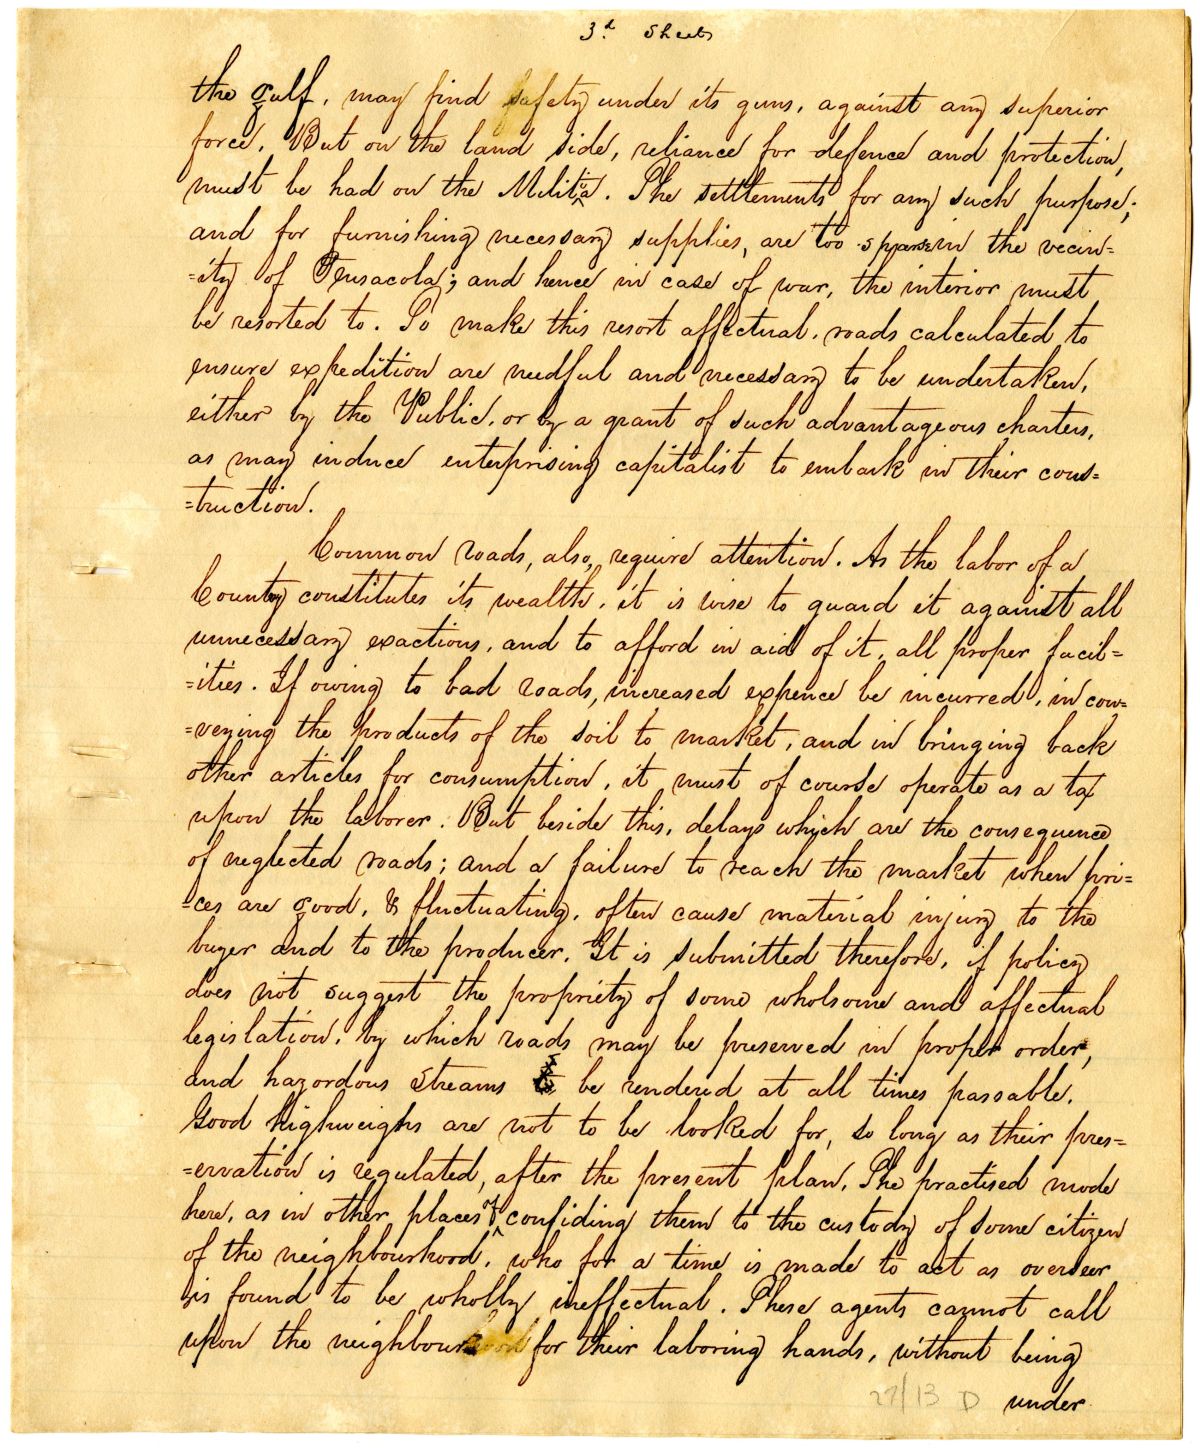 3d Sheets
the gulf, may find safety under its guns, against any superior
force. But on the land side, reliance for defence and protection,
must be had on the Militia. The settlements for any such purpose;
and for furnishing necessary supplies, are too sparse in the vecin=
=ity of Pensacola; and hence in case of war, the interior must
be resorted to. To make this resort affectual, roads calculated to
ensure expedition are needful and necessary to be undertaken,
either by the Public, or by a grant of such advantageous charters,
as may induce enterprising capitalist to embark in their cons=
=truction.
Common roads, also, require attention. As the labor of a
Country constitutes its wealth, it is wise to guard it against all
unnecessary exactions, and to afford in aid of it, all proper facil=
=ities. If owing to bad roads, increased expence be incurred, in con=
=veying the products of the soil to market, and in bringing back
other articles for consumption, it must of course operate as a tax
upon the laborer. But beside this, delays which are the consequence
of neglected roads; and a failure to reach the market when pri=
=ces are good, & fluctuating, often cause material injury to the
buyer and to the producer. It is submitted therefore, if policy
does not suggest the propriety of some wholsome and affectual
legislation, by which roads may be preserved in proper order,
and hazordous streams be rendered at all times passable.
Good highweighs are not to be looked for, so long as their pres=
=ervation is regulated, after the present plan. The practised mode
here, as in other places of confiding them to the custody of some citizen
of the neighbourhood, who for a time is made to act as overseer
is found to be wholly ineffectual. These agents cannot call
upon the neighbourhood for their laboring hands, without being
27/13 D under